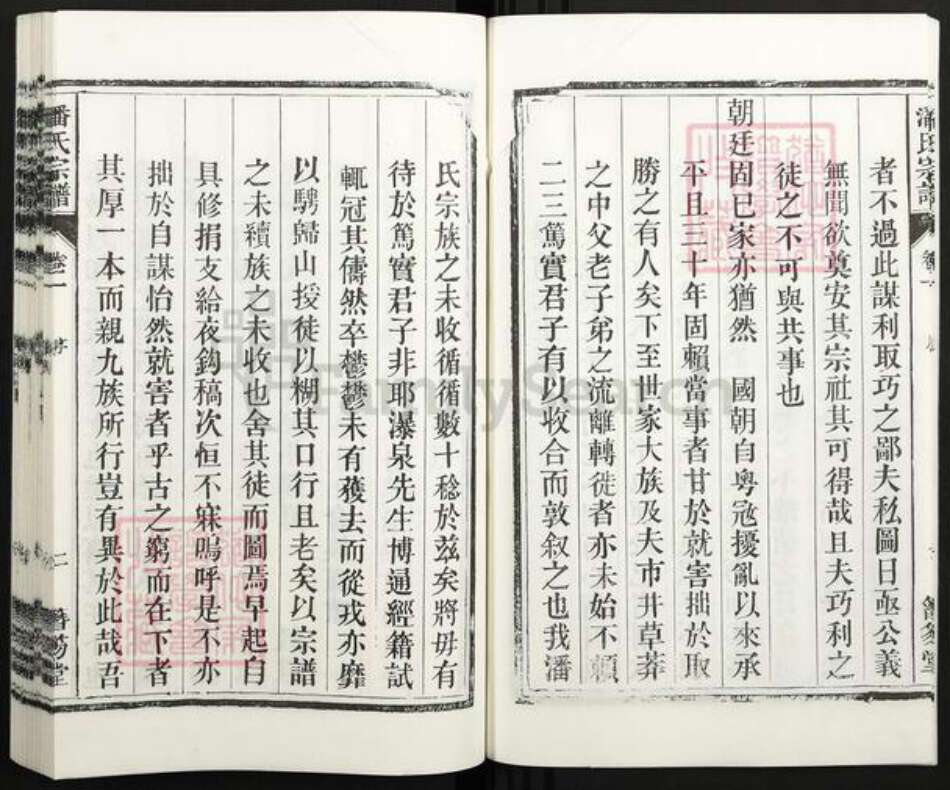 者不過此謀利取巧之鄙夫私圖日亟公義
無聞欲奠安其宗社其可得哉且夫巧利之
徒之不可與共事也
朝廷固已家亦猶然　國朝自粵冦擾亂以來承
平且三十年固賴當事者甘於就害拙於取
勝之有人矣下至世家大族及夫市井草莽
之中父老子弟之流離轉徙者亦未始不賴
二三篤實君子有以收合而敦叙之也我潘
氏宗族之未收循循數十稔於茲矣將毋有
待於篤實君子非耶瀑泉先生博通經籍試
輒冠其儔然卒鬱鬱未有蒦去而從戎亦靡
以騁歸山授徒以糊其口行且老矣以宗譜
之未續族之未收也舍其徒而圖焉早起自
具修捐支給夜鈎稿次恒不寐嗚呼是不亦
拙於自謀怡然就害者乎古之窮而在下者
其厚一本而親九族所行豈有異於此哉吾
潘氏宗譜
卷一
序
二
FamilySearch